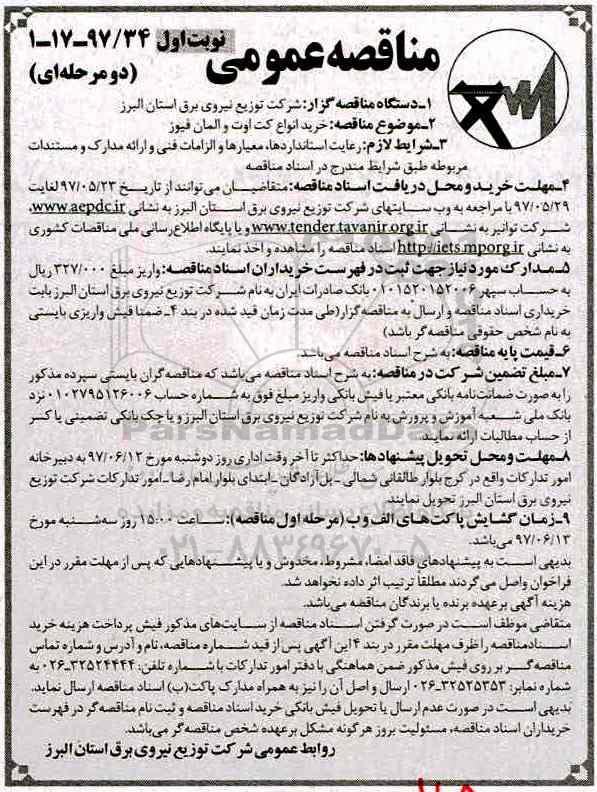 مناقصه عمومی
نوبت اول ۹۷/۳۴-۱۷-۱
(دو مرحله‌ای)
۱-دستگاه مناقصه گزار: شرکت توزیع نیروی برق استان البرز
۲-موضوع مناقصه: خرید انواع کت اوت و المان فیوز
۳-شرایط لازم: رعایت استانداردها، معیارها و الزامات فنی و ارائه مدارک و مستندات
مربوطه طبق شرایط مندرج در اسناد مناقصه
۴-مهلت خرید و محل دریافت اسناد مناقصه: متقاضیان می‌توانند از تاریخ ۹۷/۰۵/۲۳ لغایت
۹۷/۰۵/۲۹ با مراجعه به وب سایتهای شرکت توزیع نیروی برق استان البرز به نشانی www.aepdc.ir،
شرکت توانیر به نشانی www.tender.tavanir.org.ir و یا پایگاه اطلاع رسانی ملی مناقصات کشوری
به نشانی http://iets.mporg.ir اسناد مناقصه را مشاهده و اخذ نمایند.
۵-مدارک مورد نیاز جهت ثبت در فهرست خریداران اسناد مناقصه: واریز مبلغ ۳۲۷/۰۰۰ ریال
به حساب سپهر ۰۱۰۱۵۲۰۱۵۲۰۰۶ بانک صادرات ایران به نام شرکت توزیع نیروی برق استان البرز بابت
خریداری اسناد مناقصه و ارسال به مناقصه گزار (طی مدت زمان قید شده در بند ۴-ضمنا فیش واریزی بایستی
به نام شخص حقوقی مناقصه گر باشد)
۶-قیمت پایه مناقصه: به شرح اسناد مناقصه می‌باشد.
۷-مبلغ تضمین شرکت در مناقصه: به شرح اسناد مناقصه می‌باشد که مناقصه گران بایستی سپرده مذکور
را به صورت ضمانت‌نامه بانکی معتبر یا فیش بانکی واریز مبلغ فوق به شماره حساب ۰۱۰۲۷۹۵۱۲۶۰۰۶ نزد
بانک ملی شعبه آموزش و پرورش به نام شرکت توزیع نیروی برق استان البرز و یا چک بانکی تضمینی یا کسر
از حساب مطالبات ارائه نمایند.
۸-مهلت و محل تحویل پیشنهادها: حداکثر تا آخر وقت اداری روز دوشنبه مورخ ۹۷/۰۶/۱۲ به دبیرخانه
امور تدارکات واقع در کرج بلوار طالقانی شمالی -پل آزادگان -ابتدای بلوار امام رضا-امور تدارکات شرکت توزیع
نیروی برق استان البرز تحویل نمایند.
۹-زمان گشایش پاکت‌های الف و ب (مرحله اول مناقصه): ساعت ۱۵:۰۰ روز سه‌شنبه مورخ
۹۷/۰۶/۱۳ می‌باشد.
بدیهی است به پیشنهادهای فاقد امضا، مشروط، مخدوش و یا پیشنهادهایی که پس از مهلت مقرر در این
فراخوان واصل می‌گردند مطلقا ترتیب اثر داده نخواهد شد.
هزینه آگهی بر عهده برنده یا برندگان مناقصه می‌باشد.
متقاضی موظف است در صورت گرفتن اسناد مناقصه از سایت‌های مذکور فیش پرداخت هزینه خرید
اسناد مناقصه را ظرف مهلت مقرر در بند ۴ این آگهی پس از قید شماره مناقصه، نام و آدرس و شماره تماس
مناقصه گر بر روی فیش مذکور ضمن هماهنگی با دفتر امور تدارکات با شماره تلفن: ۳۲۵۲۴۴۴۴-۰۲۶ به
شماره نمابر: ۳۲۵۲۵۳۵۳-۰۲۶ ارسال و اصل آن را نیز به همراه مدارک پاکت(ب) اسناد مناقصه ارسال نماید.
بدیهی است در صورت عدم ارسال یا تحویل فیش بانکی خرید اسناد مناقصه و ثبت نام مناقصه گر در فهرست
خریداران اسناد مناقصه، مسئولیت بروز هر گونه مشکل بر عهده شخص مناقصه گر می‌باشد.
روابط عمومی شرکت توزیع نیروی برق استان البرز
ParsNamadData
۰۲۱-۸۸۳۴۹۶۷۰-۵